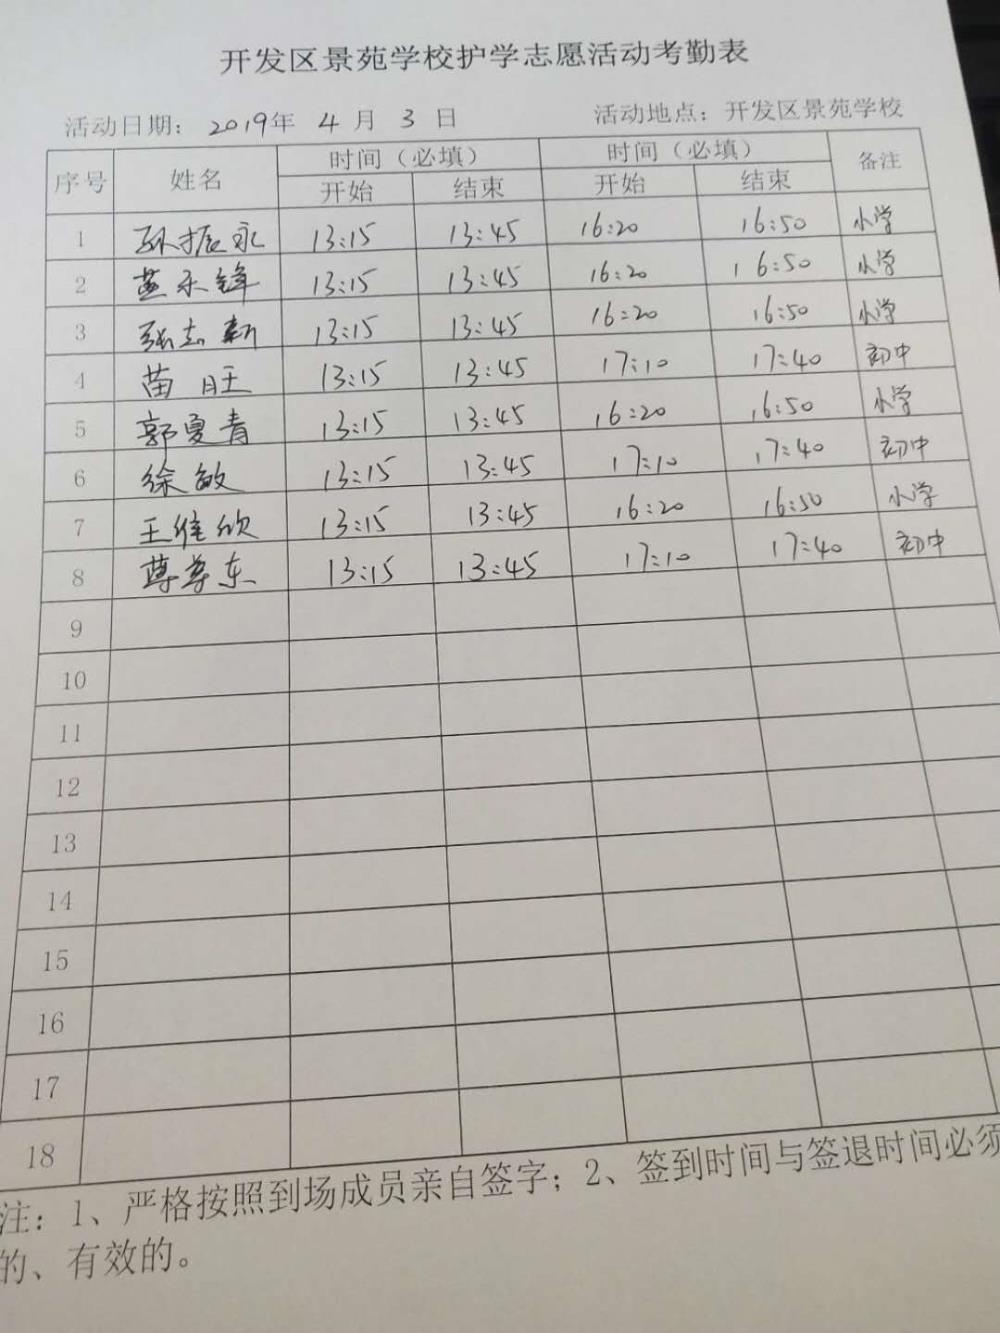 开发区景苑学校护学志愿活动考勤表
活动日期： 2019年 4 月 3 日 活动地点：开发区景苑学校
序号 姓名 时间（必填） 时间（必填） 备注
开始 结束 开始 结束
1 孙振永 13:15 13:45 16:20 16:50 小学
2 燕永锋 13:15 13:45 16:20 16:50 小学
3 张志新 13:15 13:45 16:20 16:50 小学
4 苗旺 13:15 13:45 17:10 17:40 初中
5 郭夏青 13:15 13:45 16:20 16:50 小学
6 徐敏 13:15 13:45 17:10 17:40 初中
7 王维欣 13:15 13:45 16:20 16:50 小学
8 尊东 13:15 13:45 17:10 17:40 初中
9
10
11
12
13
14
15
16
17
18
注：1、严格按照到场成员亲自签字；2、签到时间与签退时间必须
的、有效的。